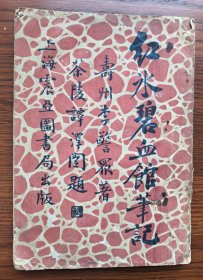 红水碧血館筆記
壽州李警眾著
茶陵譚澤闓題
上海震亞圖書局出版